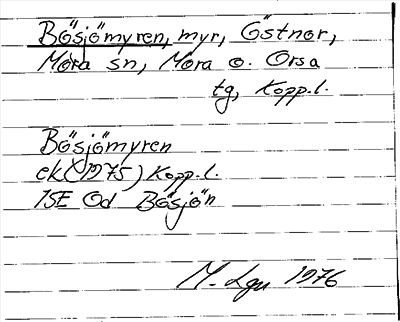 Bösjömyren, myr, Östnor,
Mora sn, Mora o. Orsa
tg, Kopp.l.
Bösjömyren
ek (1975) Kopp.l.
1SE Od Bösjön
M. Lgn 1976